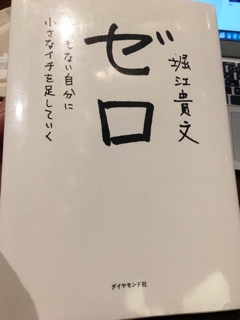 ゼロ
堀江貴文
もない自分に
小さなイチを足していく
ダイヤモンド社